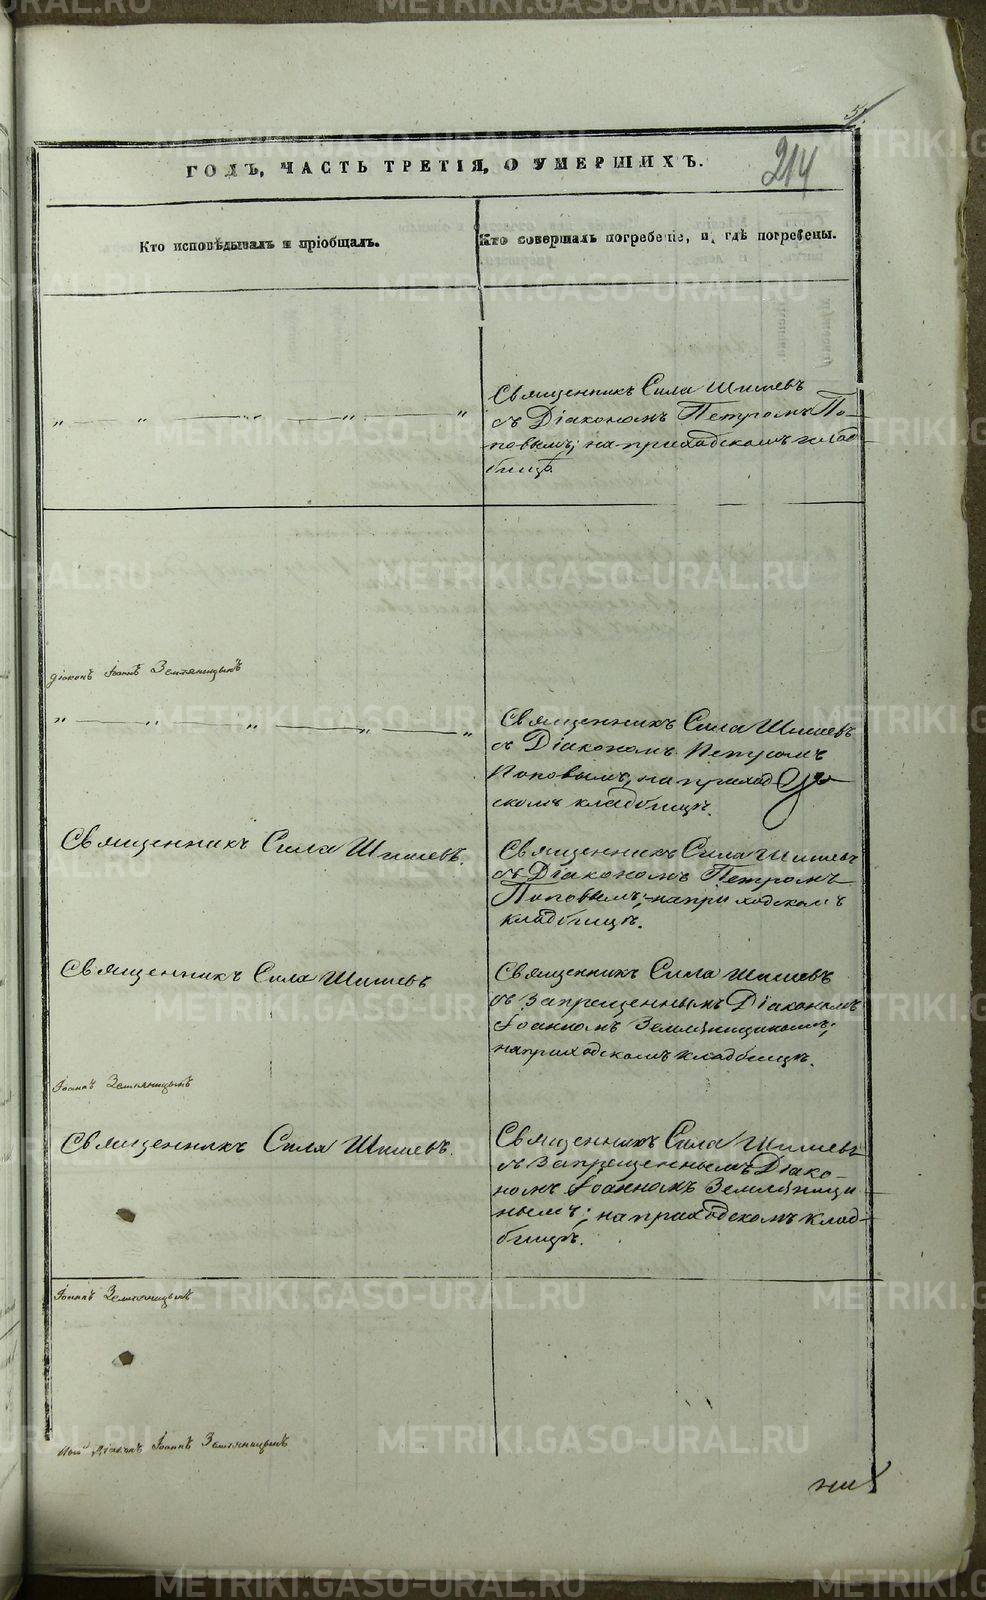 214
ГОДЪ, ЧАСТЬ ТРЕТІЯ, О УМЕРШИХЪ.
Кто исповѣдывалъ и пріобщалъ.
Кто совершалъ погребеніе, и гдѣ погребены.
Священникъ Сила Шишевъ
съ Діакономъ Петромъ По-
повымъ; на приходскомъ клад-
бищѣ.
Діаконъ Іоаннъ Земляницынъ
Священникъ Сила Шишевъ
съ Діакономъ Петромъ
Поповымъ, на приход
скомъ кладбищѣ.
Священникъ Сила Шишевъ.
Священникъ Сила Шишевъ
съ Діакономъ Петромъ
Поповымъ; на приходскомъ
кладбищѣ.
Священникъ Сила Шишевъ
Священникъ Сила Шишевъ
съ запрещеннымъ Діакономъ
Іоанномъ
на приходскомъ кладбищѣ.
Іоаннъ Земляницынъ
Священникъ Сила Шишевъ.
Священникъ Сила Шишевъ
съ запрещеннымъ Діако-
номъ Іоанномъ Земляници
нымъ; на приходскомъ клад-
бищѣ.
Іоаннъ Земляницынъ
Діаконъ Іоаннъ Земляницынъ
METRIKI.GASO-URAL.RU